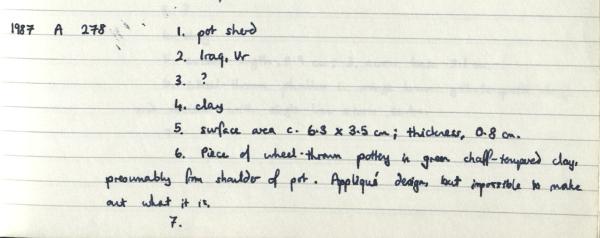 1987 A 278 1. pot sherd
2. Iraq, Ur
3. ?
4. clay
5. surface area c. 6.3 x 3.5 cm; thickness, 0.8 cm.
6. Piece of wheel-thrown pottery in green chaff-tempered clay,
presumably from shoulder of pot. Appliqué design, but impossible to make
out what it is.
7.